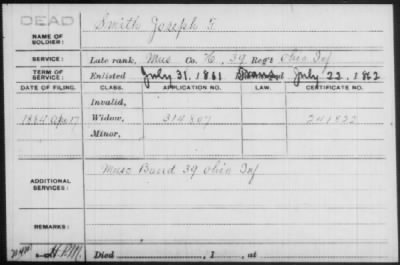 DEAD
NAME OF SOLDIER: Smith Joseph F
SERVICE: Late rank, Mus Co. H, 39 Reg't Ohio Inf
TERM OF SERVICE: Enlisted July 31, 1861 July 22, 1862
DATE OF FILING. CLASS. APPLICATION NO. LAW. CERTIFICATE NO.
Invalid,
1884 Apr 17 Widow, 314807 241822
Minor,
ADDITIONAL SERVICES: Musc Band 39 Ohio Inf
REMARKS:
Died , 1 , at